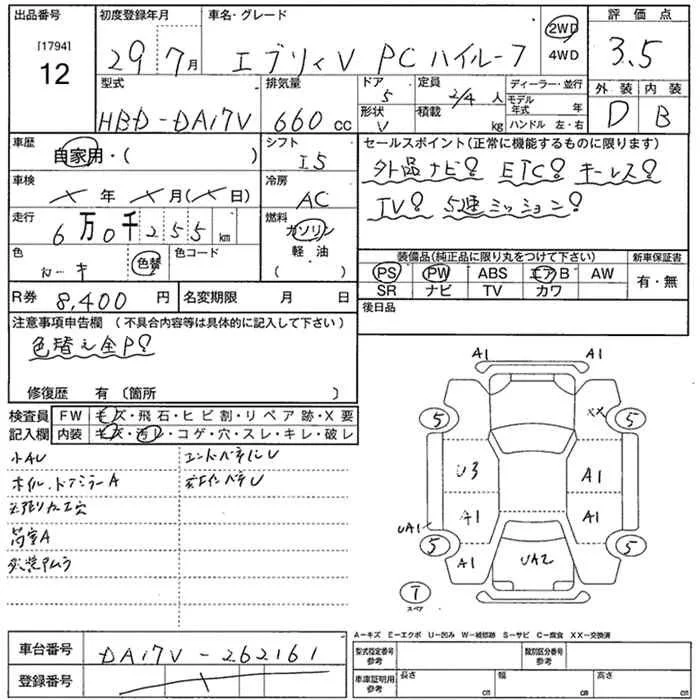 出品番号 初度登録年月 車名・グレード 評価点
[1794] 12 29年7月 エブリィV PC ハイルーフ 2WD 4WD 3.5
型式 排気量 ドア 5 定員 2/4人 ディーラー・並行 外装 内装
HBD-DA17V 660cc 形状 V 積載 kg モデル年式 年 ハンドル 左・右 D B
車歴 シフト セールスポイント(正常に機能するものに限ります)
自家用・( ) I5 外品ナビ! ETC! キーレス!
車検 冷房
×年×月(×日) AC TV! 5速ミッション!
走行 燃料
6万0千255km ガソリン
軽・油
( )
色 色替 色コード 装備品(純正品に限り丸をつけて下さい) 新車保証書
PS PW ABS エアB AW 有・無
SR ナビ TV カワ
R券 8,400円 名変期限 月 日 後日品
注意事項申告欄 (不具合内容等は具体的に記入して下さい)
色替え全P!
修復歴 有 (箇所 )
検査員 FW キズ・飛石・ヒビ割・リペア跡・X要
記入欄 内装 キズ・汚レ・コゲ・穴・スレ・キレ・破レ
小AU
ホイル、ドアミラーA
荷室A
A1 A1
5 XX 5
U3 A1
A1 A1
UA1
5 A1 UA2 5
T
スペア
A-キズ E-エクボ U-凹み W-補修跡 S-サビ C-腐食 XX-交換済
車台番号 DA17V-262161 型式指定番号 参考 類別区分番号 参考
登録番号 車庫証明用 参考 長さ cm 幅 cm 高さ cm